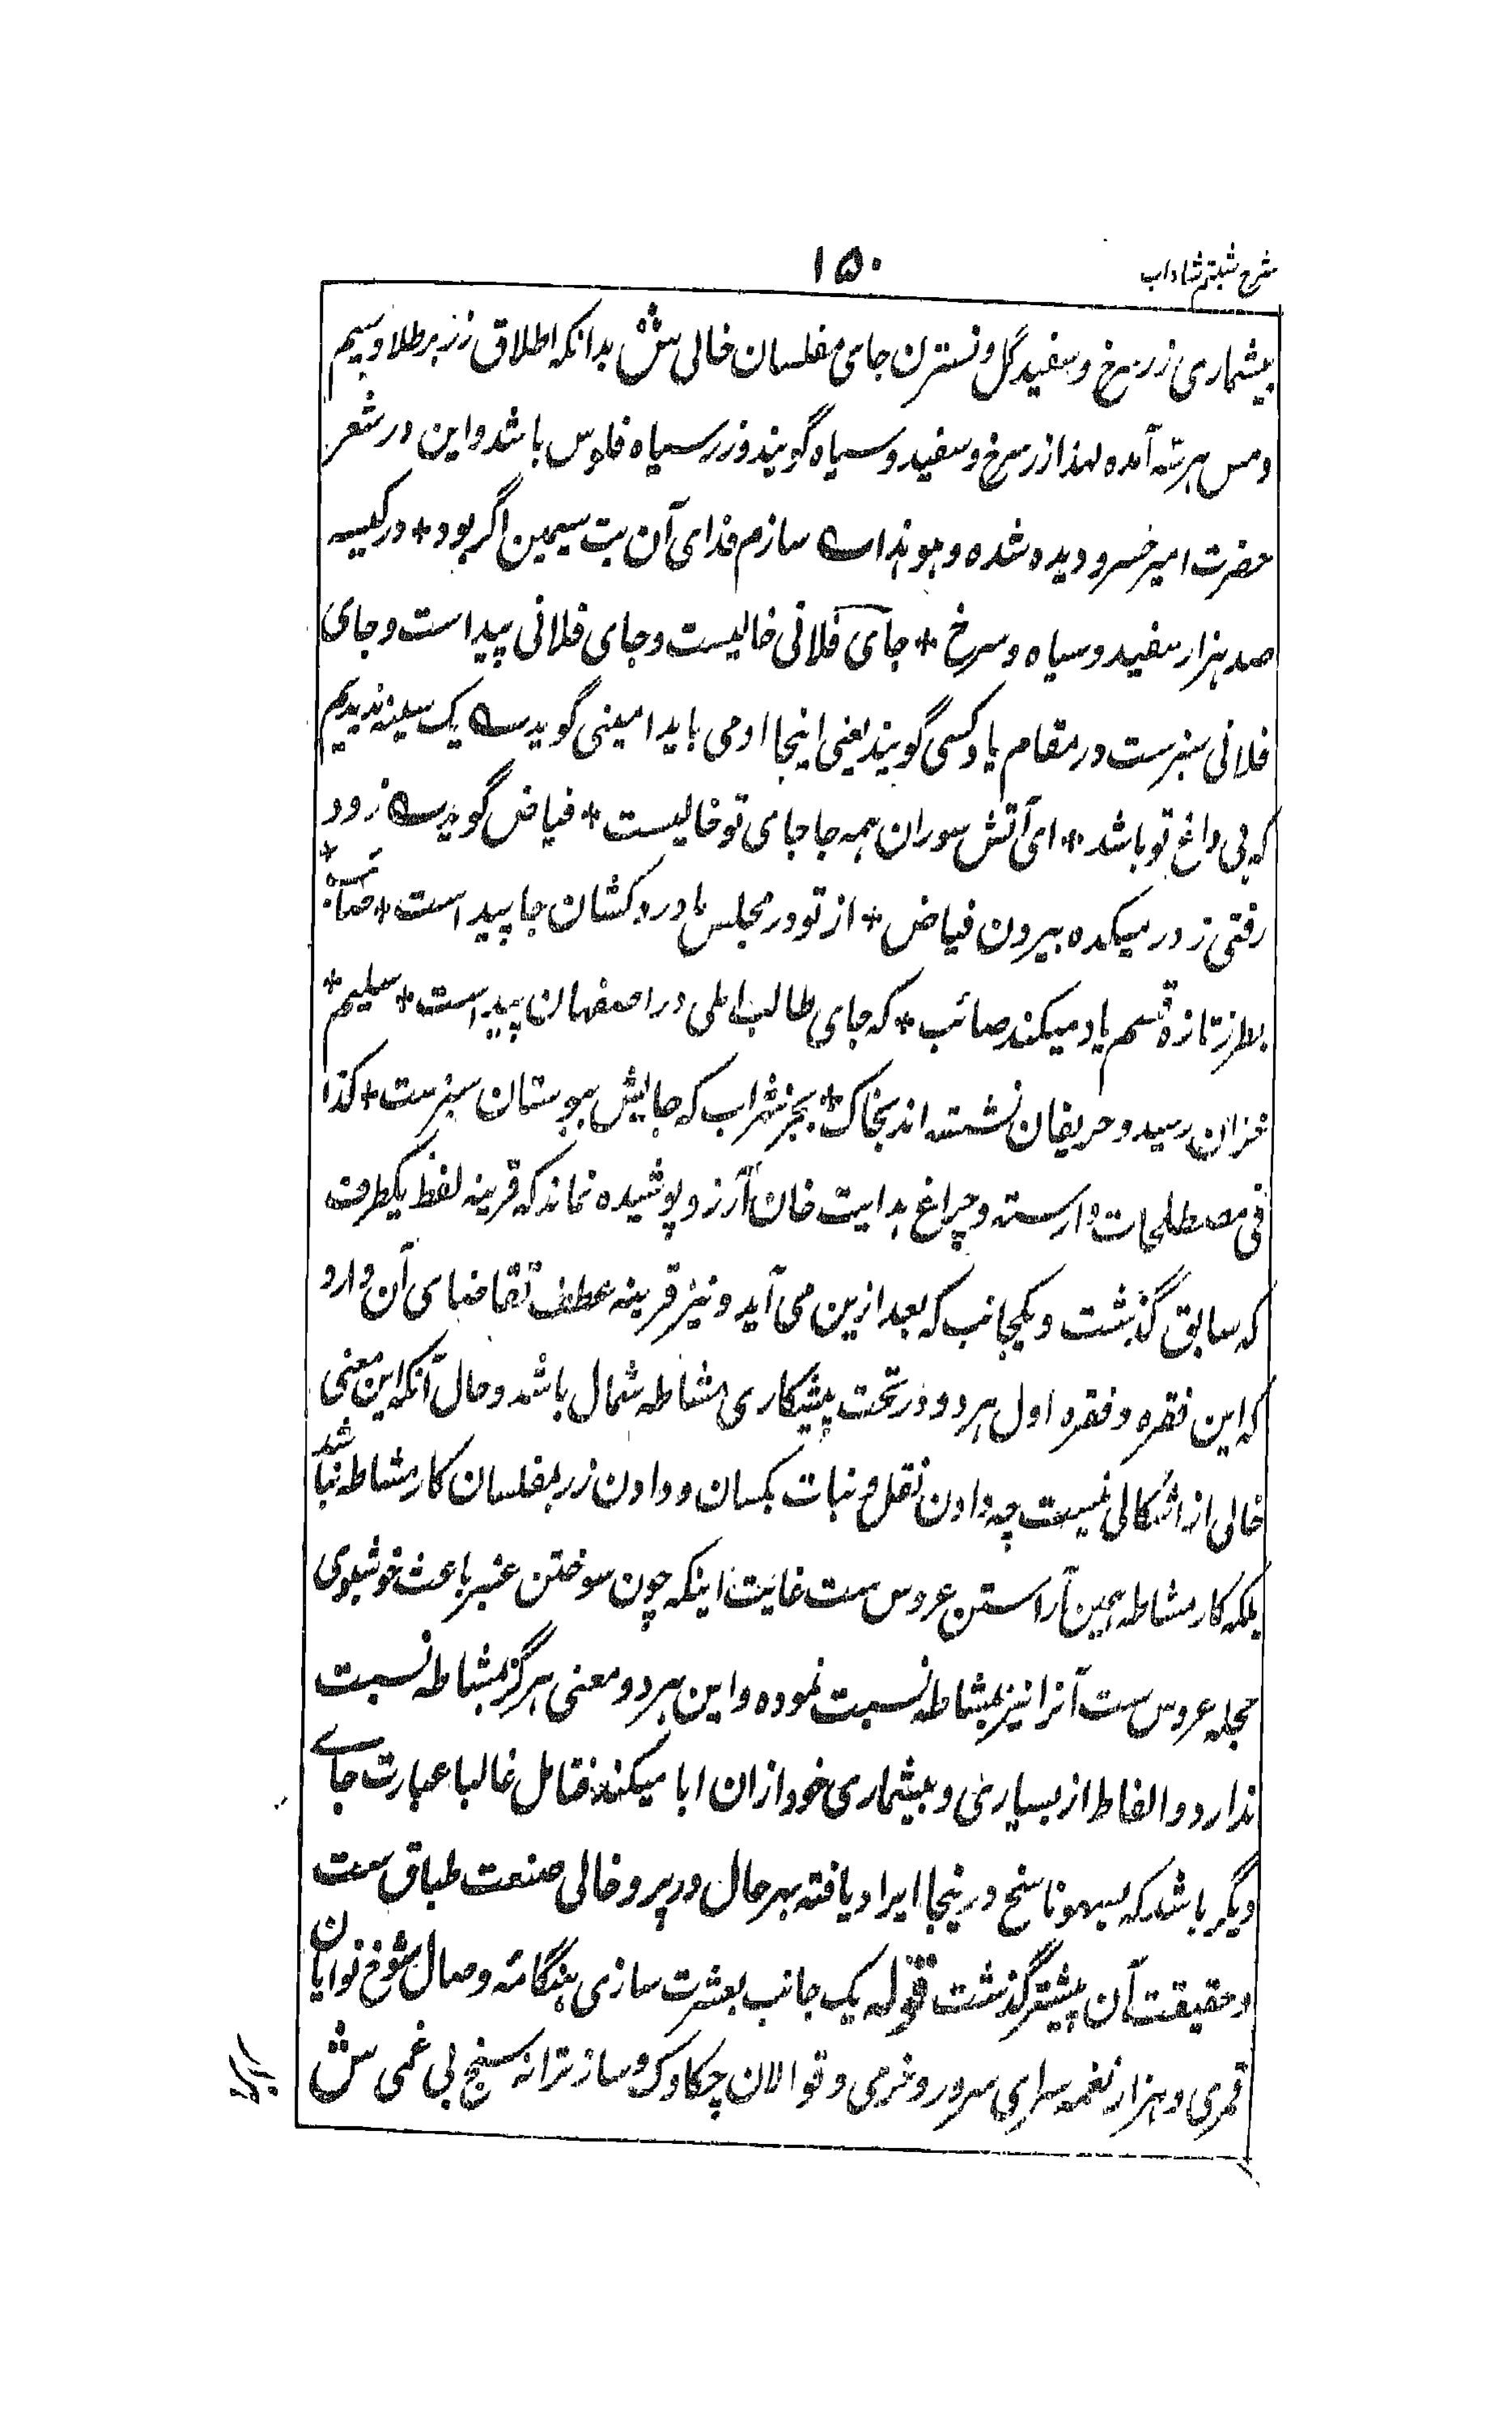 شرح شبنم شاداب
۱۵۰
بیشماری زر سرخ و سفید گل و نسترن جای مفلسان خالی ش بدانکه اطلاق زر بر طلا و سیم
و مس هر سه آمده لهذا زر سرخ و سفید و سیاه گویند و زر سیاه فلوس باشد و این در شعر
حضرت امیر خسرو دیده شده و هو هذا ؎ سازم فدای آن بت سیمین اگر بود * در کیسه
صد هزار سفید و سیاه و سرخ * جای فلانی خالیست و جای فلانی پیداست و جای
فلانی سبزست در مقام یاد کسی گویند یعنی اینجا او می باید امینی گوید ؎ یک سینه ندیدیم
که بی داغ تو باشد * ای آتش سوران همه جا جای تو خالیست * فیاض گوید ؎ زود
رفتی ز در میکده بیرون فیاض * از تو در مجلس ما دردکشان جا پیداست * صائب *
بطرز تازه قسم یاد میکند صائب * که جای طالب املی در اصفهان پیداست * سلیم *
خزان رسید و حریفان نشسته اند بخاک * بجز شراب که جایش ببوستان سبزست * کذا
فی مصطلحات وارسته و چراغ هدایت خان آرزو پوشیده نماند که قرینه لفظ یکطرف
که سابق گذشت و یکجانب که بعد ازین می آید و نیز قرینه عطف تقاضای آن دارد
که این فقره و فقره اول هر دو در تحت پیشکاری مشاطه شمال باشد و حال آنکه این معنی
خالی از اشکالی نیست چه دادن نقل و نبات بکسان و دادن زر بمفلسان کار مشاطه نباشد
بلکه کار مشاطه همین آراستن عروس ست غایت اینکه چون سوختن عنبر باعث خوشبوی
حجله عروس ست آنرا نیز بمشاطه نسبت نموده و این هر دو معنی هرگز بمشاطه نسبت
ندارد و الفاظ از بسیاری و بیشماری خود ازان ابا میکند فتامل غالبا عبارت جاے
دیگر باشد که بسهو ناسخ درینجا ایراد یافته بهر حال در پر و خالی صنعت طباق ست
و حقیقت آن پیشتر گذشت قوله یک جانب بعشرت سازی هنگامه وصال شوخ نوایان
قمری و هزار نغمه سرای سرور و خرمی و قوالان چکاوک و ساز ترانه سنج بی غمی ش